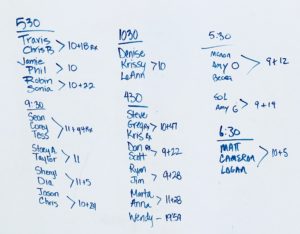 530
Travis
Chris B > 10+18 Rx
Jamie
Phil > 10
Robin
Sonia > 10+22
9:30
Sean
Corey
Tess > 11+44 Rx
Stacy A
Taylor > 11
Sheryl
Dia > 11+5
Jason
Chris > 10+24
1030
Denise
Krissy > 10
LeAnn
430
Steve
Greg Rx > 10+47
Kris Rx
Dan Rx
Scott > 9+22
Ryan
Jim > 9+28
Marta
Anna > 11+28
Wendy - 19:59
5:30
Megan
Amy O > 9+12
Becca
Sol
Amy G > 9+19
6:30
Matt
Cameron > 10+5
Logan